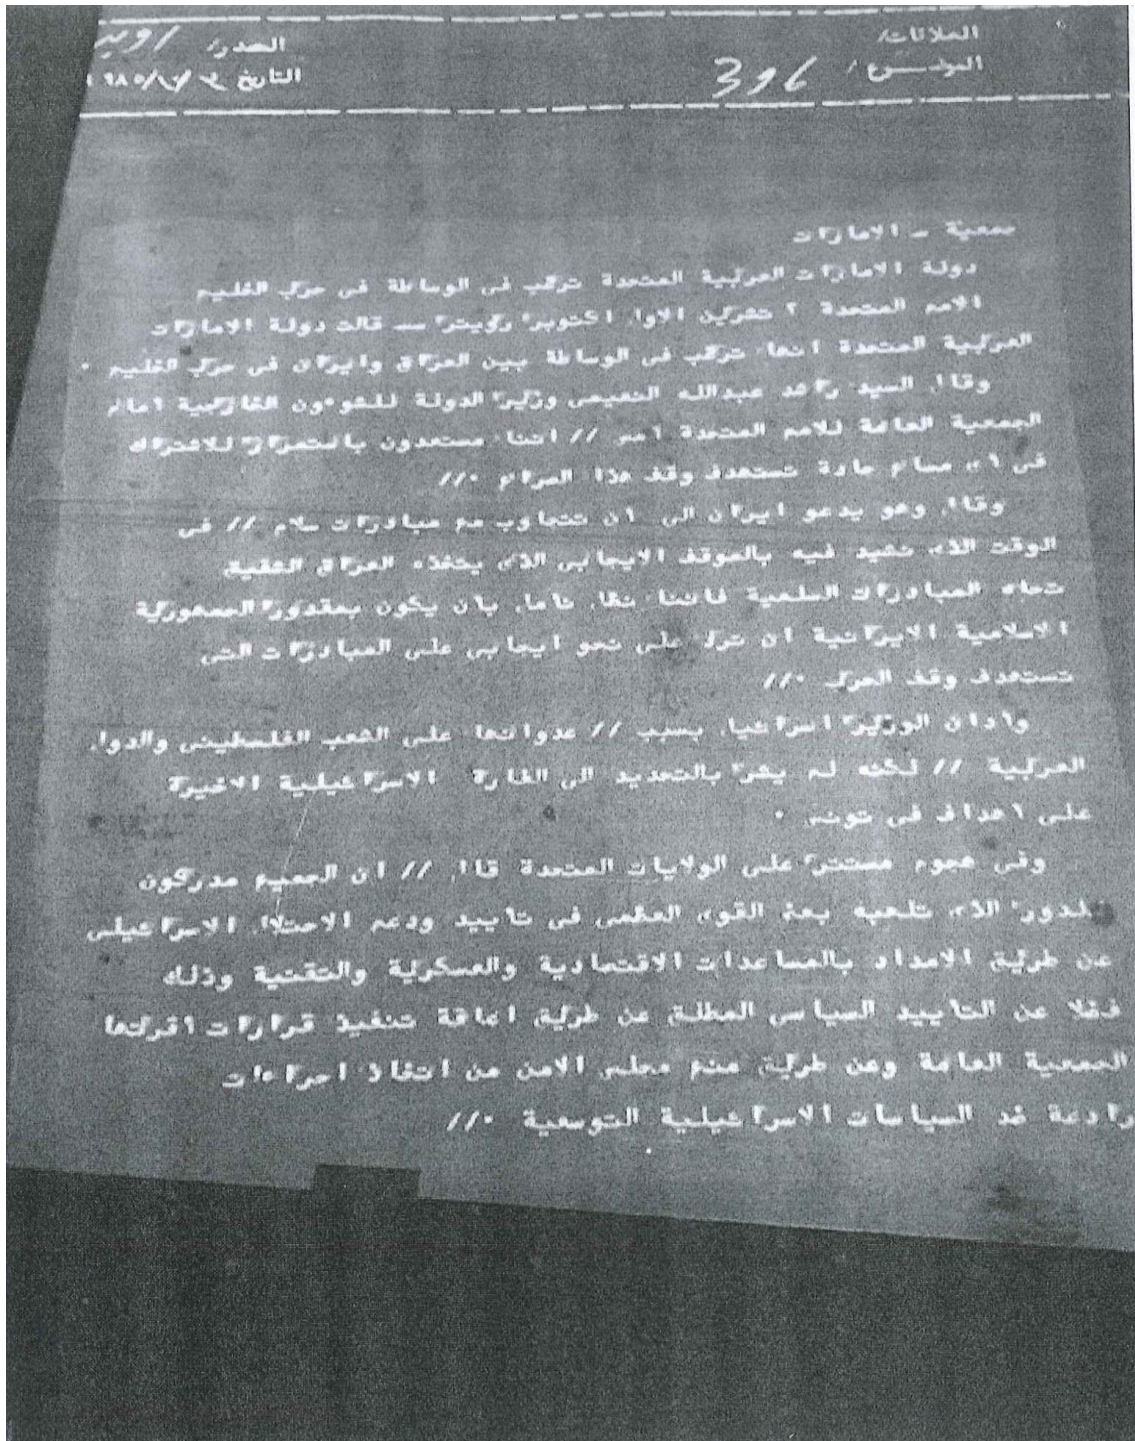 العلاقات/
المصدر/
الموضوع/ 396
التاريخ
جمعية - الامارات
دولة الامارات العربية المتحدة ترغب فى الوساطة فى حرب الخليج
الامم المتحدة ٢ تشرين الاول اكتوبر رويتر - قالت دولة الامارات
العربية المتحدة انها ترغب فى الوساطة بين العراق وايران فى حرب الخليج .
وقال السيد راشد عبدالله النعيمى وزير الدولة للشوءون الخارجية امام
الجمعية العامة للامم المتحدة امس // اننا مستعدون باستمرار للاشتراك
فى اى مساع جادة تستهدف وقف هذا الصراع .//
وقال وهو يدعو ايران الى ان تتجاوب مع مبادرات سلام // فى
الوقت الذى نشيد فيه بالموقف الايجابى الذى يتخذه العراق الشقيق
تجاه المبادرات السلمية فاننا نظل نأمل بان يكون بمقدور الجمهورية
الاسلامية الايرانية ان ترد على نحو ايجابى على المبادرات التى
تستهدف وقف الحرب .//
وادان الوزير اسرائيل بسبب // عدوانها على الشعب الفلسطينى والدول
العربية // لكنه لم يشر بالتحديد الى الغارة الاسرائيلية الاخيرة
على اهداف فى تونس .
وفى هجوم مستتر على الولايات المتحدة قال // ان الجميع مدركون
للدور الذى تلعبه بعض القوى العظمى فى تاييد ودعم الاحتلال الاسرائيلى
عن طريق الامداد بالمساعدات الاقتصادية والعسكرية والتقنية وذلك
فضلا عن التاييد السياسى المطلق عن طريق اعاقة تنفيذ قرارات اقرتها
الجمعية العامة وعن طريق منع مجلس الامن من اتخاذ اجراءات
رادعة ضد السياسات الاسرائيلية التوسعية .//